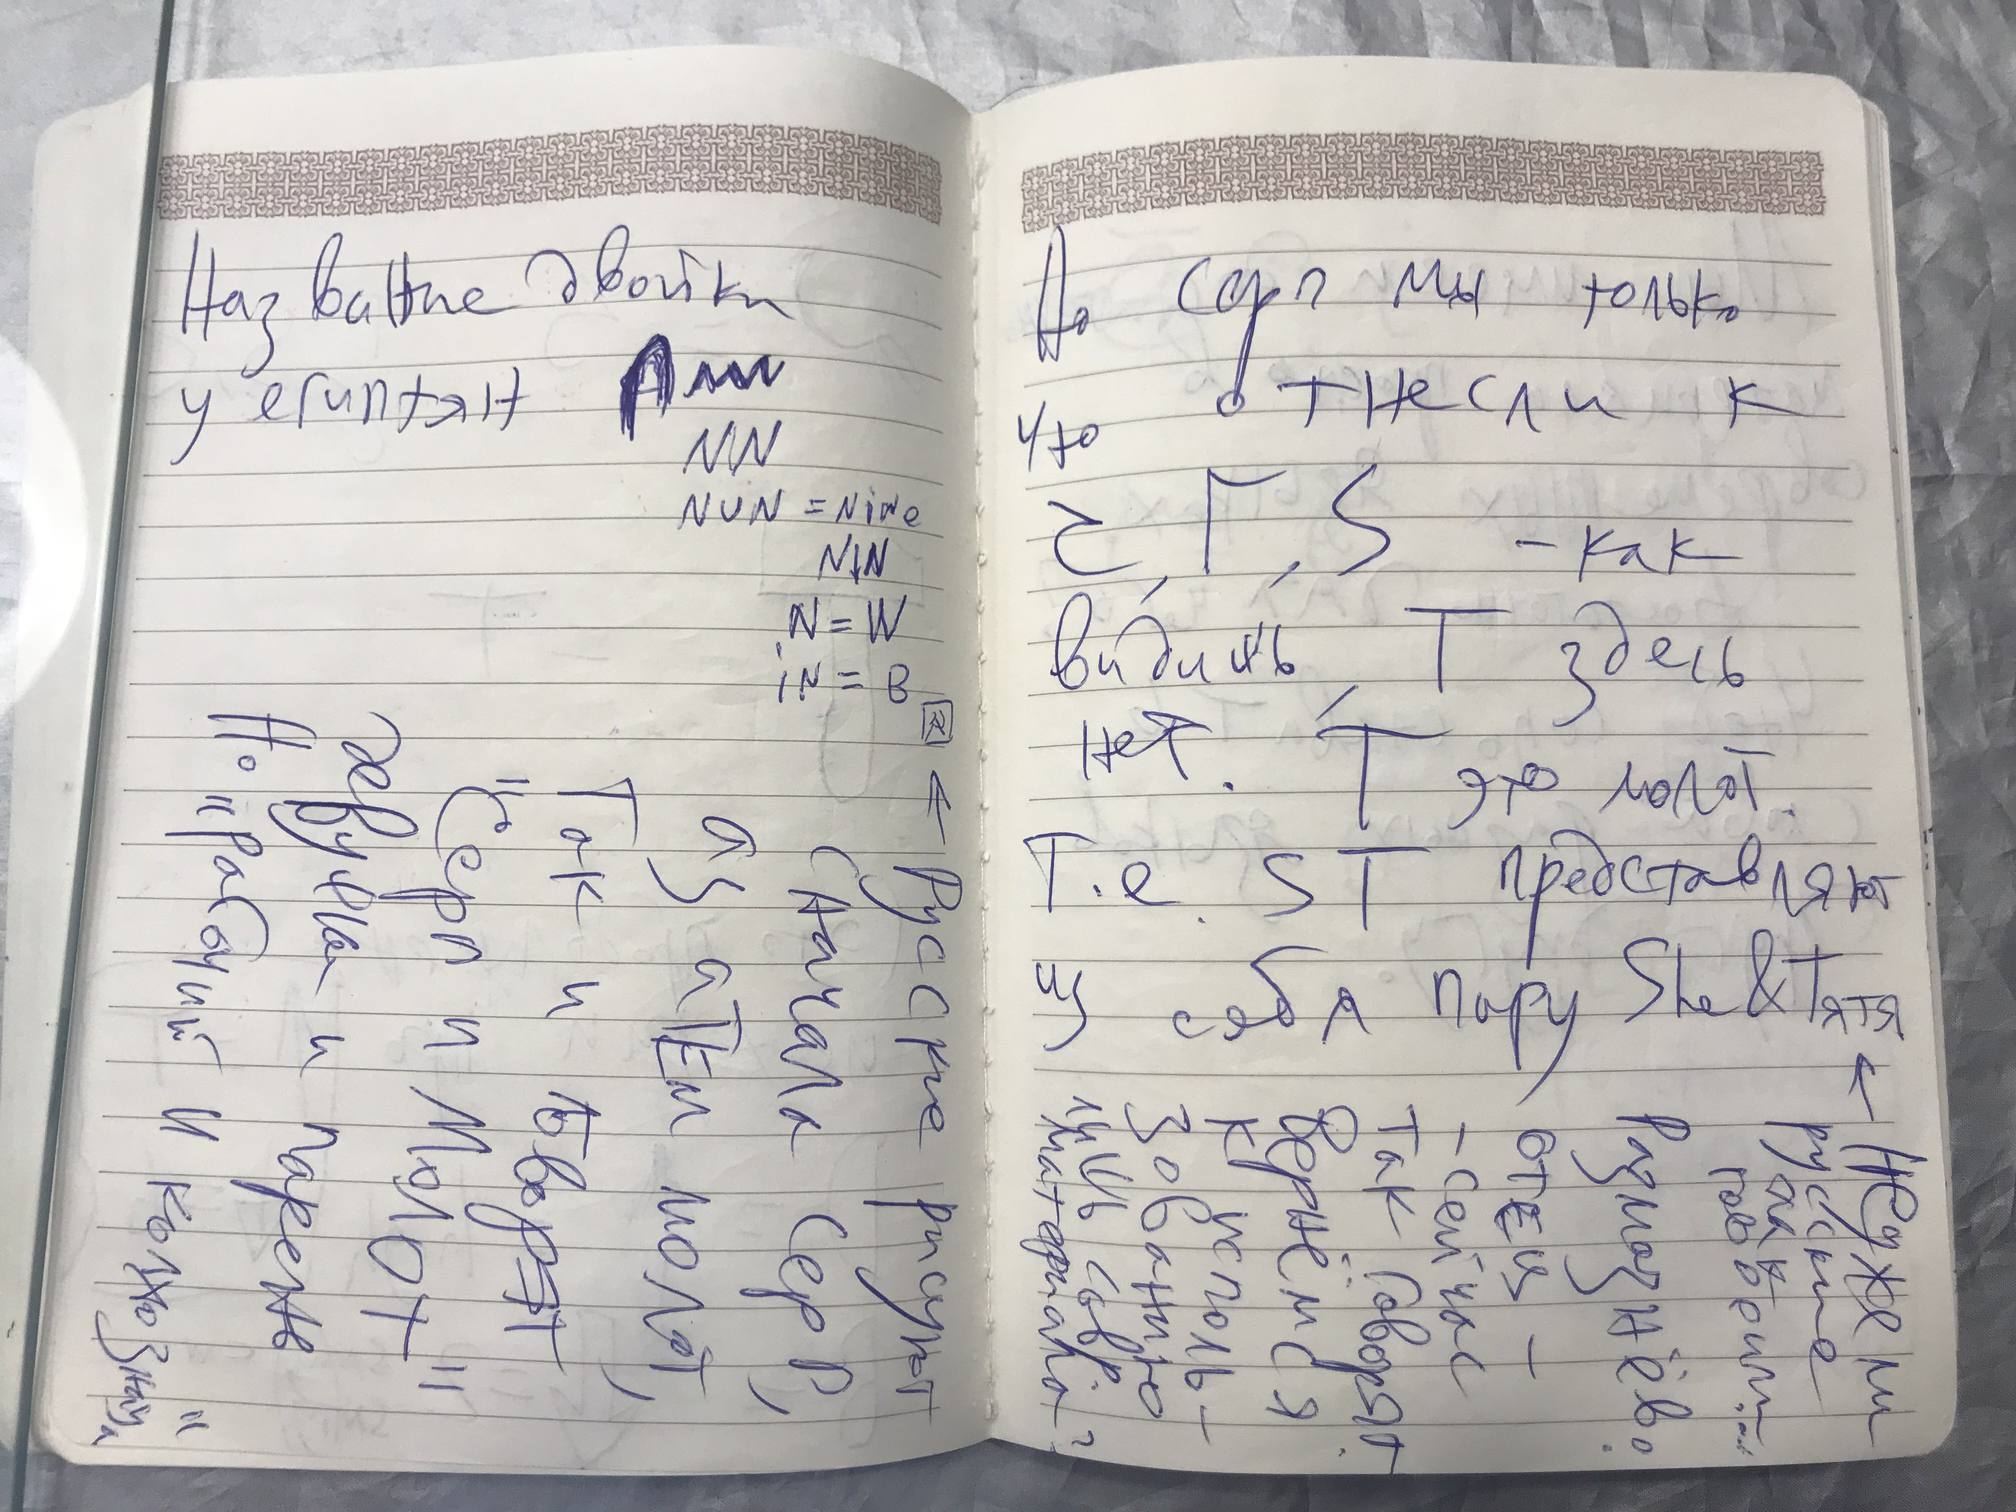 Название двойки
у египтян
NN
NUN = Nine
NIN
N = W
iN = B
← Русские рисуют
сначала серп,
аз атем молот,
Так и говорят
"Серп и Молот"
девушка и парень
Но "Рабочий и колхозница"
Но серп мы только
что отнесли к
Հ, Г, S – как
видишь, Т здесь
нет. Т это молот.
Т.е. ST представляют
из себя пару She&Тятя
← Неужели
русские
так
говорили
отец –
– сейчас
так говорят.
Вернёмся
к исполь-
зованию
лишь совр.
материала?